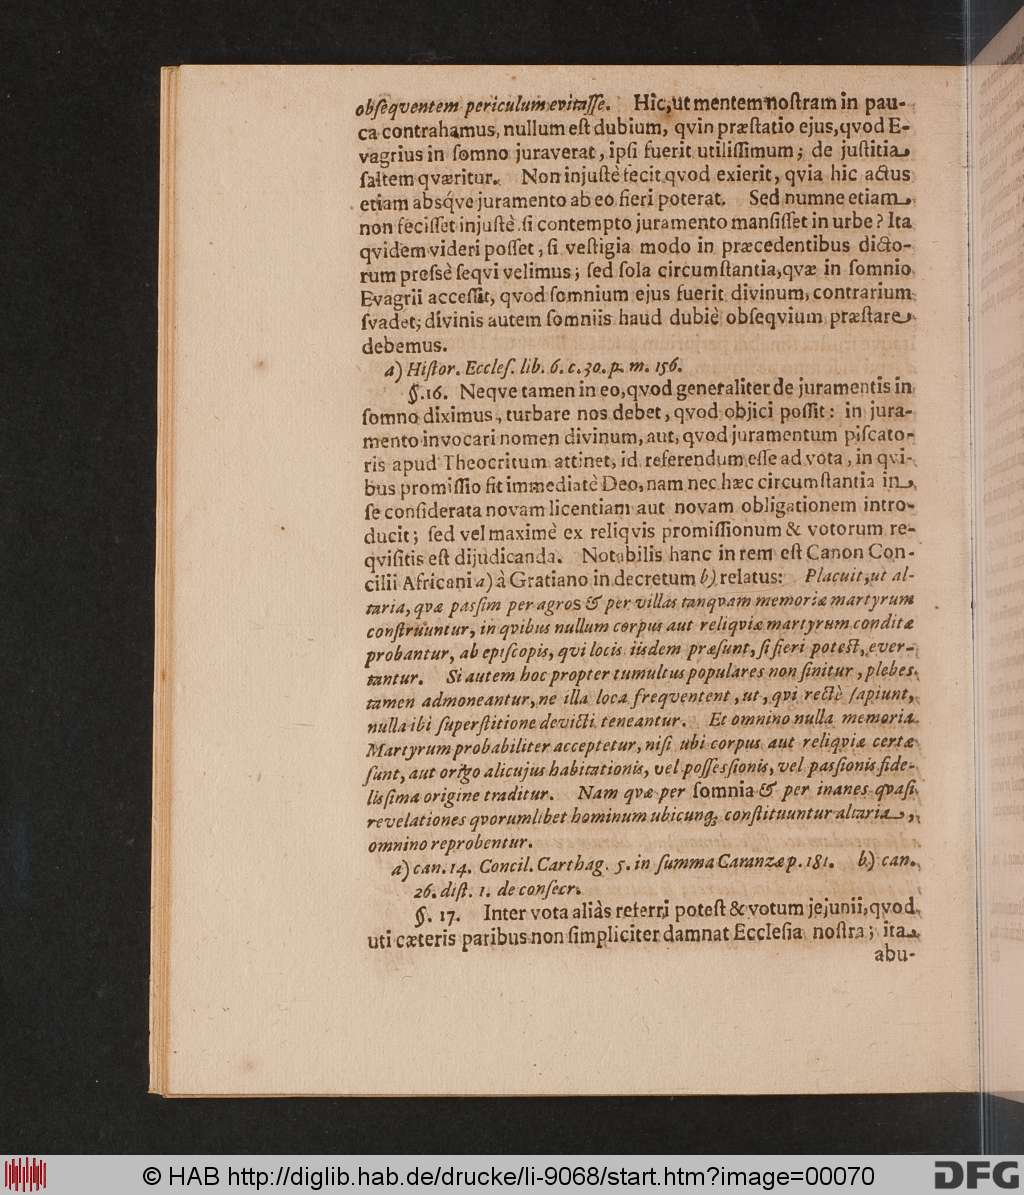 obſeqventem periculum evitaſſe. Hîc, ut mentem noſtram in pau-
ca contrahamus, nullum eſt dubium, qvin præſtatio ejus, qvod E-
vagrius in ſomno juraverat, ipſi fuerit utiliſſimum; de juſtitia
ſaltem qværitur. Non injuſtè fecit qvod exierit, qvia hic actus
etiam absq́ve juramento ab eo fieri poterat. Sed numne etiam
non feciſſet injuſtè ſi contempto juramento manſiſſet in urbe? Ita
qvidem videri poſſet, ſi veſtigia modo in præcedentibus dicto-
rum preſsè ſeqvi velimus; ſed ſola circumſtantia, qvæ in ſomnio
Evagrii acceſſit, qvod ſomnium ejus fuerit divinum, contrarium
ſvadet; divinis autem ſomniis haud dubiè obſeqvium præſtare
debemus.
a) Hiſtor. Eccleſ. lib. 6. c. 30. p. m. 156.
§. 16. Neqve tamen in eo, qvod generaliter de juramentis in
ſomno diximus, turbare nos debet, qvod objici poſſit: in jura-
mento invocari nomen divinum, aut, qvod juramentum piſcato-
ris apud Theocritum attinet, id referendum eſſe ad vota, in qvi-
bus promiſſio fit immediatè Deo, nam nec hæc circumſtantia in
ſe conſiderata novam licentiam aut novam obligationem intro-
ducit; ſed vel maximè ex reliqvis promiſſionum & votorum re-
qviſitis eſt dijudicanda. Notabilis hanc in rem eſt Canon Con-
cilii Africani a) à Gratiano in decretum b) relatus: Placuit, ut al-
taria, qvæ paſsim per agros & per villas tanqvam memoriæ martyrum
conſtruuntur, in qvibus nullum corpus aut reliqviæ martyrum conditæ
probantur, ab epiſcopis, qvi locis iisdem præſunt, ſi fieri poteſt, ever-
tantur. Si autem hoc propter tumultus populares non ſinitur, plebes
tamen admoneantur, ne illa loca freqventent, ut, qvi rectè ſapiunt,
nulla ibi ſuperſtitione devicti teneantur. Et omnino nulla memoria
Martyrum probabiliter acceptetur, niſi ubi corpus aut reliqviæ certæ
ſunt, aut origo alicujus habitationis, vel poſſeſsionis, vel paſsionis fide-
liſsima origine traditur. Nam qvæ per ſomnia & per inanes qvaſi
revelationes qvorumlibet hominum ubicunq; conſtituuntur altaria,
omnino reprobentur.
a) can. 14. Concil. Carthag. 5. in ſumma Caranzæ p. 181. b) can.
26. diſt. 1. de conſecr.
§. 17. Inter vota aliàs referri poteſt & votum jejunii, qvod
uti cæteris paribus non ſimpliciter damnat Eccleſia noſtra; ita
abu-
© HAB http://diglib.hab.de/drucke/li-9068/start.htm?image=00070
DFG